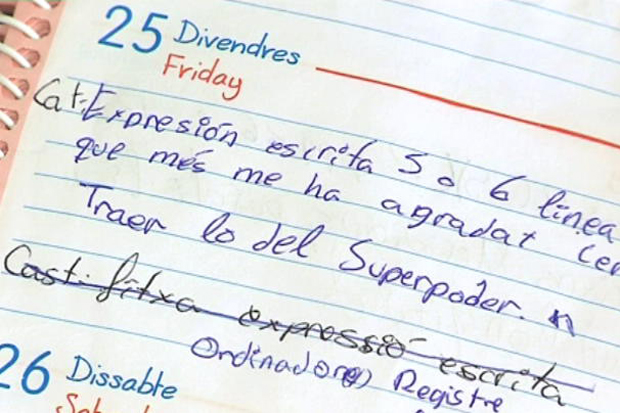 25 Divendres
Friday
Cat: Expresión escrita 5 o 6 linea
que més me ha agradat
Traer lo del Superpoder.
Cast: fitxa expressió escrita
Ordinadores Registre
26 Dissabte